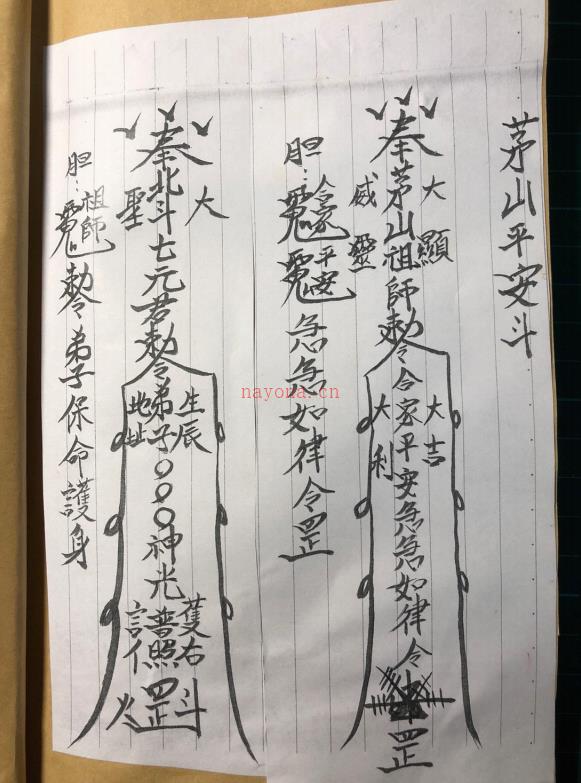 茅山平安斗
大顯
奉茅山祖師勅令合家平安急急如律令罡
威靈
大吉
大利
胆:合家平安 急急如律令罡
大
奉北斗七元君勅令弟子○○○神光普照罡
聖
生辰
地址
斗
火
胆:祖師 勅令弟子保命護身
nayona.cn